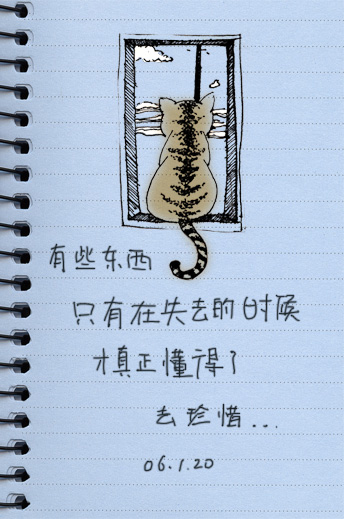 有些东西
只有在失去的时候
才真正懂得了
去珍惜...
06.1.20